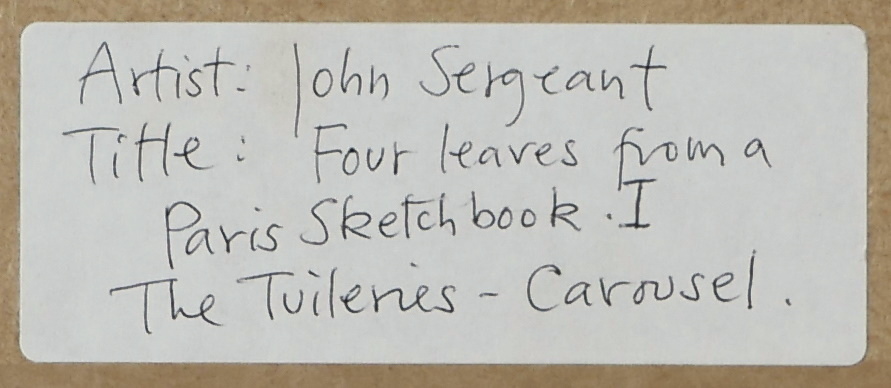 Artist: John Sergeant
Title: Four leaves from a
Paris Sketchbook. I
The Tuileries - Carousel.